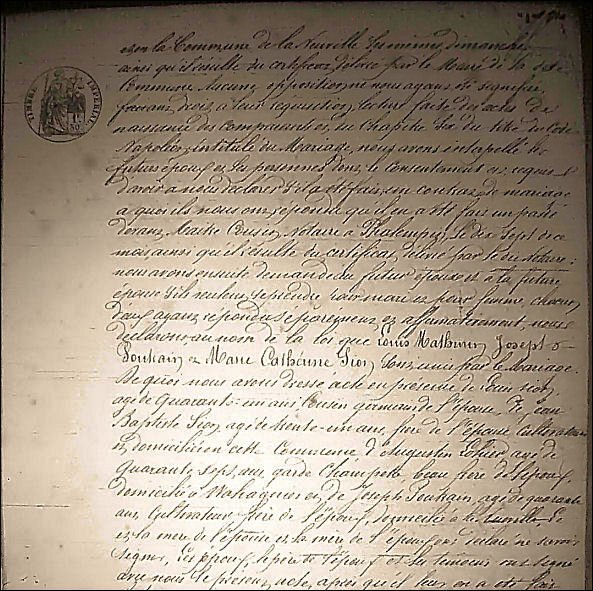 TIMBRE IMPERIAL
et en la Commune de la Neuville les mêmes dimanches
ainsi qu'il résulte du certificat délivré par le Maire de la dite
Commune. Aucune opposition ne nous ayant été signifiée,
faisant droit à leur réquisition, lecture faite des actes de
naissance des comparants et du Chapitre Six du titre du Code
Napoléon, intitulé du Mariage, nous avons interpellé les
futurs époux et les personnes dont le consentement est requis
d'avoir à nous déclarer s'il a été fait un contrat de mariage
à quoi ils nous ont répondu qu'il en a été fait un passé
devant Maître Cousin, Notaire à Phalempin, le dix Sept de ce
mois ainsi qu'il résulte du certificat délivré par le dit Notaire ;
nous avons ensuite demandé au futur époux et à la future
épouse s'ils veulent se prendre pour mari et pour femme, chacun
d'eux ayant répondu séparément et affirmativement, nous
déclarons au nom de la loi que Louis Mathurin Joseph
Souhain et Marie Cathérine Sion sont unis par le Mariage.
De quoi nous avons dressé acte en présence de Jean Sion
âgé de Quarante-un ans Cousin germain de l'épouse, de Jean
Baptiste Sion, âgé de trente-un ans, frère de l'épouse Cultivateurs
et domiciliés en cette Commune, d'Augustin âgé de
Quarante sept ans, garde Champêtre, beau frère de l'époux,
domicilié à Wahagnies et de Joseph Souhain, âgé de quarante
ans, Cultivateur, frère de l'époux, domicilié à la Neuville,
et la mère de l'épouse et la mère de l'époux ont déclaré ne savoir
signer, les époux, le père de l'époux et les témoins ont signé
avec nous le présent acte, après qu'il leur en a été fait